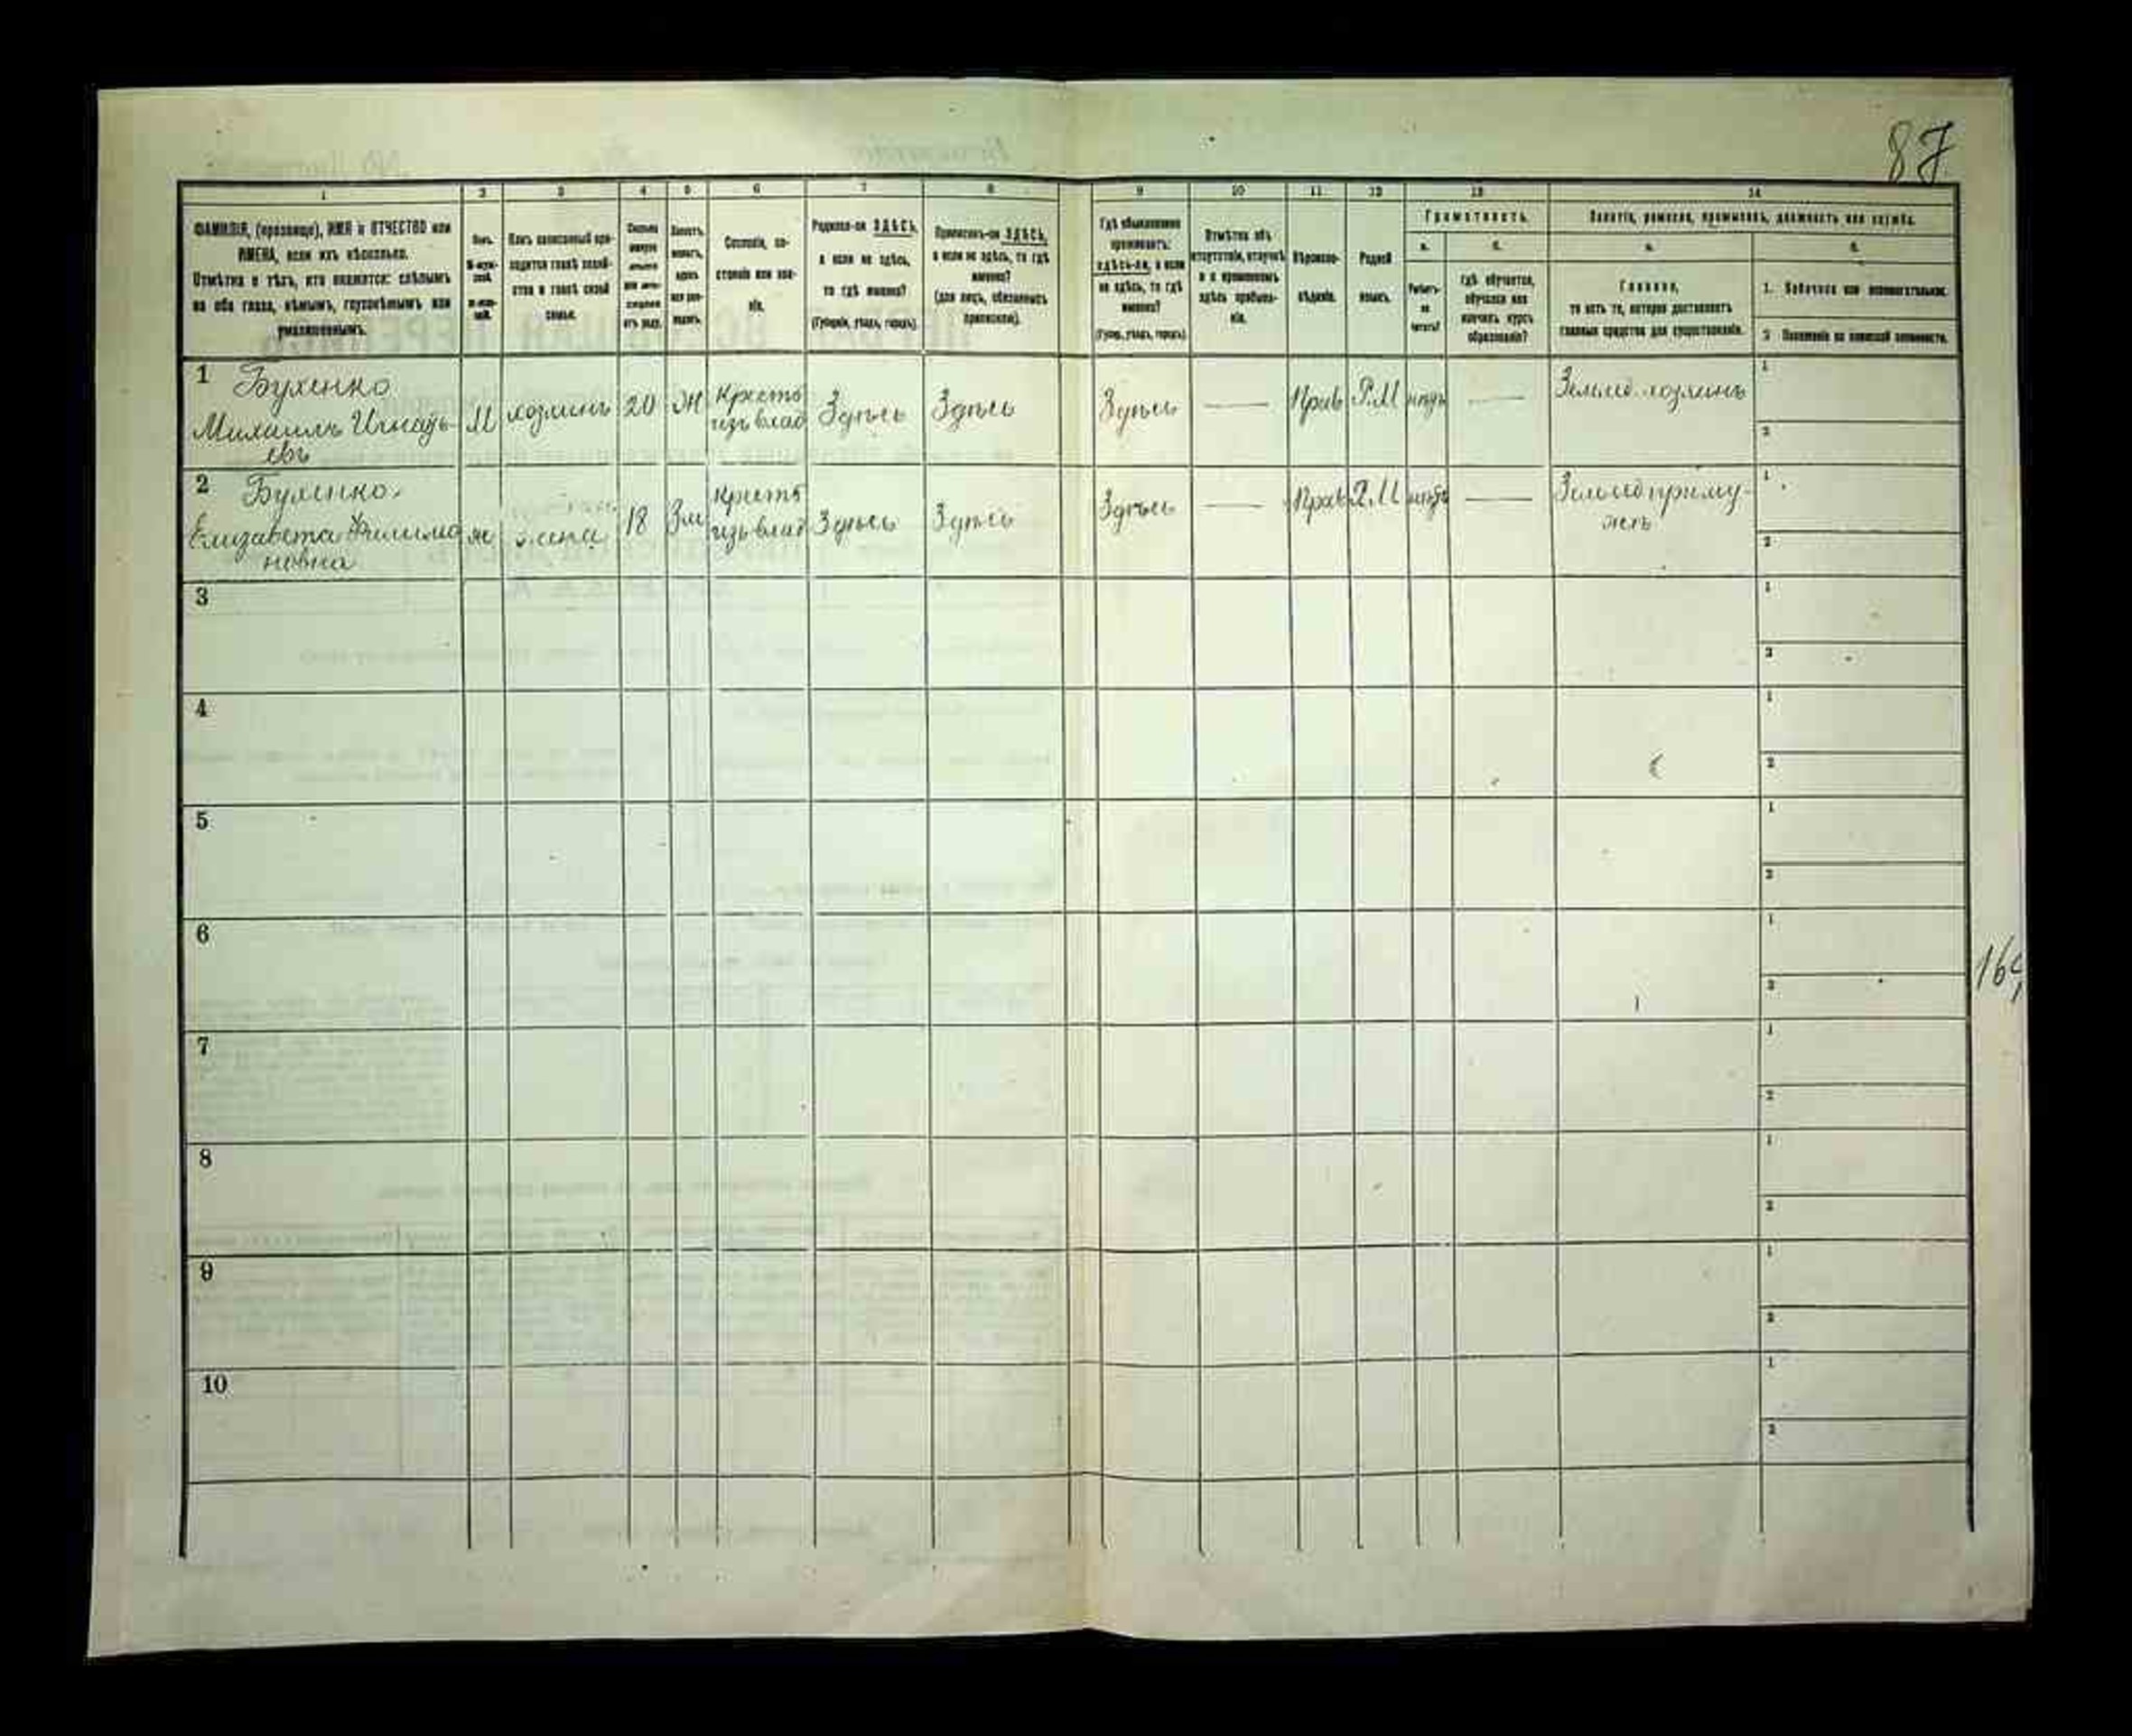 87
1 2 3 4 5 6 7 8 9 10 11 12 13 14
ФАМИЛІЯ, (прозвище), ИМЯ и ОТЧЕСТВО или
ИМЕНА, если ихъ нѣсколько.
Отмѣтка о тѣхъ, кто окажется: слѣпымъ
на оба глаза, нѣмымъ, глухонѣмымъ или
умалишеннымъ.
Полъ.
Какъ записанный при-
ходится главѣ хозяй-
ства и главѣ своей
семьи.
Сословіе, со-
стояніе или зва-
ніе.
Родился-ли ЗДѢСЬ,
а если не здѣсь,
то гдѣ именно?
(Губернія, уѣздъ, городъ).
Приписанъ-ли ЗДѢСЬ,
а если не здѣсь, то гдѣ
именно?
(для лицъ, обязанныхъ
припиской).
Гдѣ обыкновенно
проживаетъ:
здѣсь-ли, а если
не здѣсь, то гдѣ
именно?
(Губер., уѣздъ, городъ).
Отмѣтка объ
отсутствіи, отлучкѣ
и о временномъ
здѣсь пребыва-
ніи.
Вѣроиспо-
вѣданіе.
Родной
языкъ.
Грамотность.
а. б.
Умѣетъ-
ли
читать?
Гдѣ обучается,
обучался или
кончилъ курсъ
образованія?
Занятіе, ремесло, промыселъ, должность или служба.
а. б.
Главное,
то есть то, которое доставляетъ
главныя средства для существованія.
1. Побочное или вспомогательное.
2 Положеніе по воинской повинности.
1 Бухенко
Михаилъ Игнатьевъ М хозяинъ 20 Ж Кресть изъ влад Здѣсь Здѣсь Здѣсь — Прав Р.М — Землед. хозяинъ 1 2
2 Бухенко
Елизавета Филимоновна ж жена 18 Зм кресть изъ влад Здѣсь Здѣсь Здѣсь — Прав Р.М — Землед при мужѣ 1 2
3 1 2
4 1 2
5 1 2
6 1 2
7 1 2
8 1 2
9 1 2
10 1 2